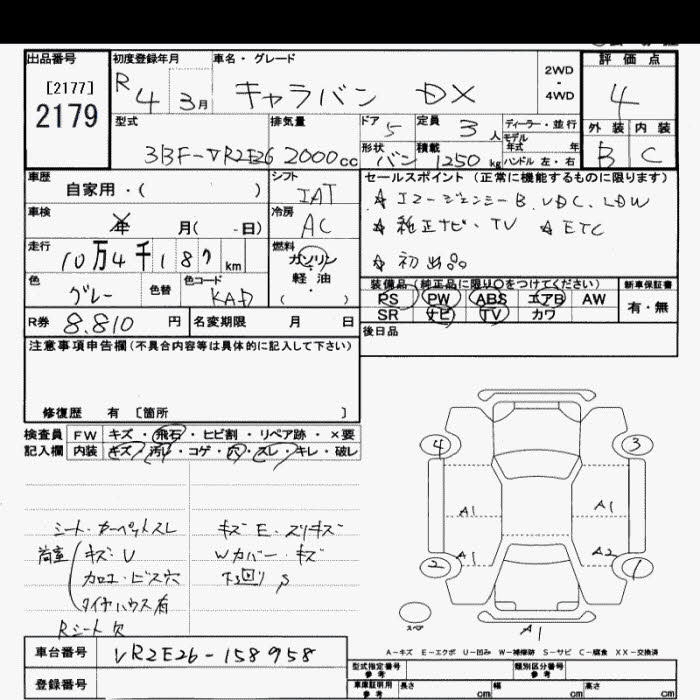 出品番号
[2177]
2179
初度登録年月
R4 3月
車名・グレード
キャラバン DX
2WD
・
4WD
評価点
4
外装 内装
B C
型式
3BF-VR2E26
排気量
2000cc
ドア
5
定員
3人
形状
バン
積載
1250kg
ディーラー・並行
モデル
年式 年
ハンドル 左・右
車歴
自家用・( )
シフト
IAT
車検
年 月( -日)
冷房
AC
走行
10万4千187km
燃料
ガソリン
軽油
・
( )
色
グレー
色替
色コード
KAD
R券 8,810円
名変期限 月 日
セールスポイント(正常に機能するものに限ります)
☆エマージェンシーB、VDC、LDW
☆純正ナビ・TV ☆ETC
☆初出品
装備品(純正品に限り○をつけてください)
PS PW ABS エアB AW
SR ナビ TV カワ
新車保証書
有・無
後日品
注意事項申告欄(不具合内容等は具体的に記入して下さい)
修復歴 有 〔箇所 〕
検査員
記入欄
FW キズ・飛石・ヒビ割・リペア跡・×要
内装 キズ・汚レ・コゲ・穴・スレ・キレ・破レ
シート・カーペットスレ
荷室 キズ・U
カロコ・ビス穴
タイヤハウス有
Rシート欠
キズ E・スリキズ
Wカバー・キズ
下回り S
4
3
A1
A1
A1
A2
2
1
スペア
A1
A-キズ E-エクボ U-凹み W-補修跡 S-サビ C-腐食 XX-交換済
車台番号 VR2E26-158958
登録番号
型式指定番号
参考
類別区分番号
参考
車庫証明用
参考
長さ cm
幅 cm
高さ cm